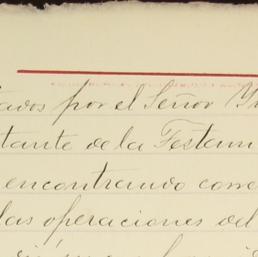 ados por el Señor
tante de la Testam
encontrando corre
las operaciones del